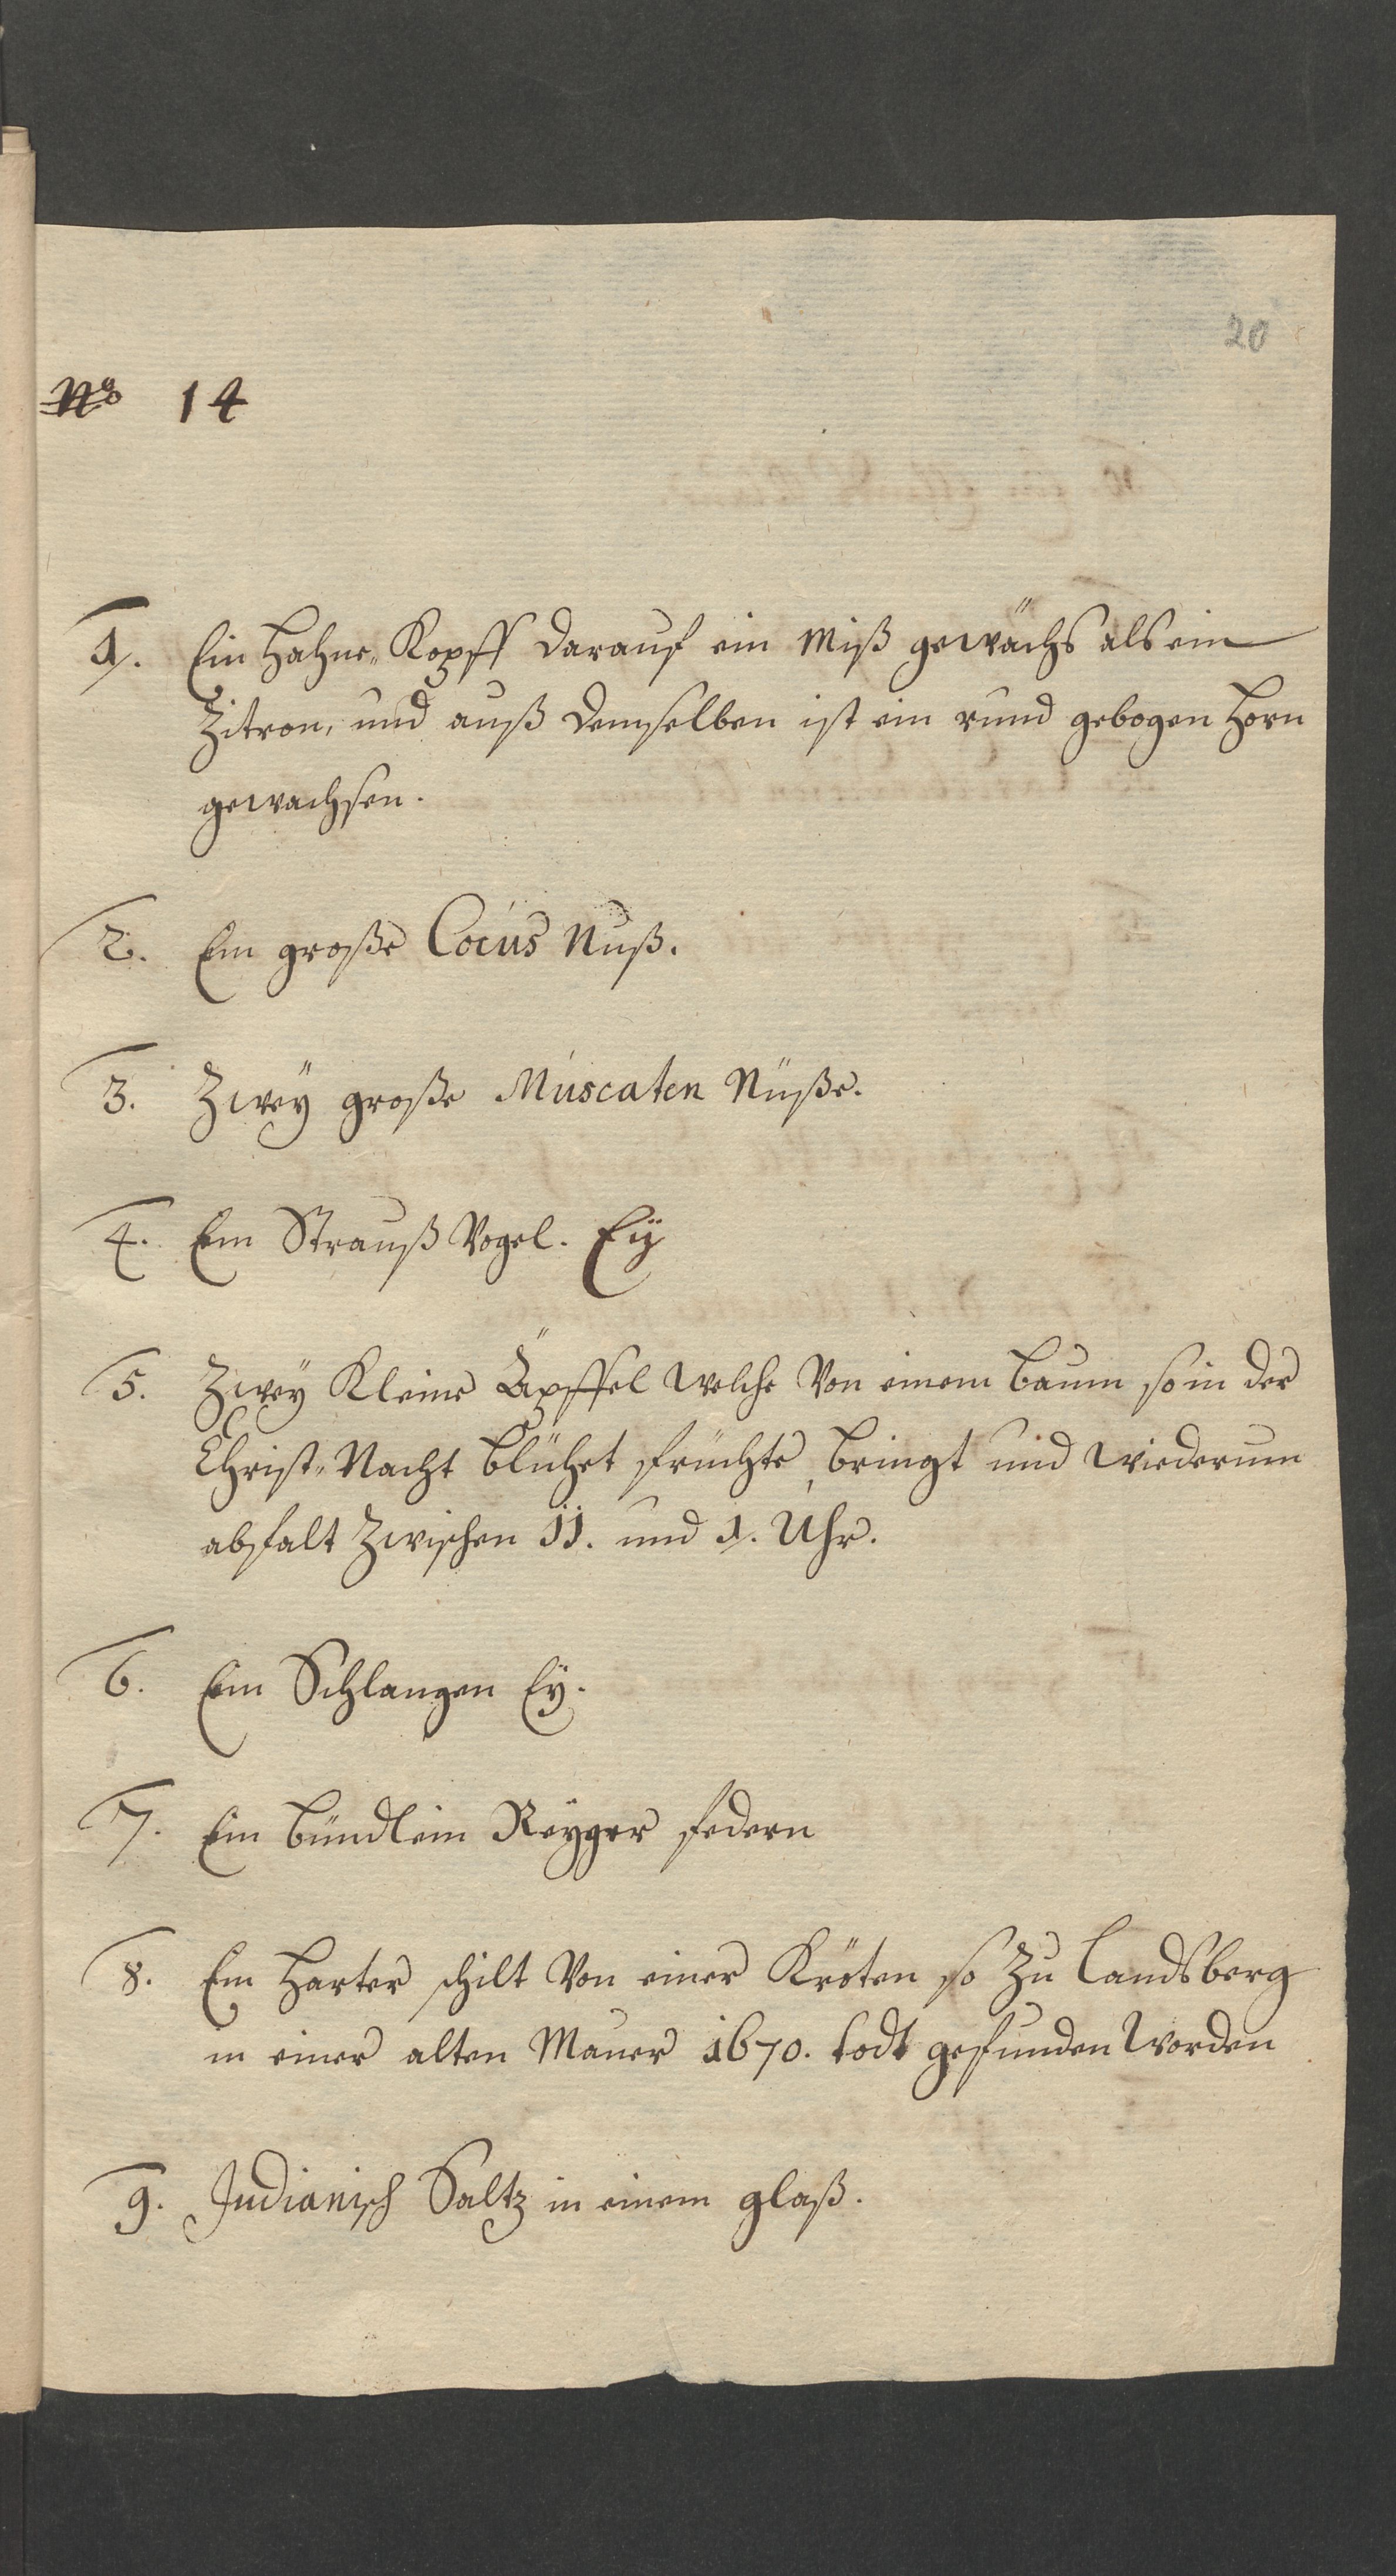 20
No 14
1. Ein Hahne-Kopff darauf ein Miß gewächs als ein
Zitron, und auß demselben ist ein rund gebogen Horn
gewachsen.
2. Ein große Cocus Nuß.
3. Zwey große Muscaten Nüße.
4. Ein Strauß Vogel. Eÿ
5. Zwey Kleine Äpffel welche Von einem baum so in der
Christ-Nacht blühet früchte, bringt und wiederum
abfalt Zwischen 11. und 1. Uhr.
6. Ein Schlangen Eÿ.
7. Ein bündlein Reÿger federn
8. Ein Harter schilt Von einer Kröten so Zu Landsberg
in einer alten Mauer 1670. todt gefunden worden
9. Indianisch Saltz in einem glaß.